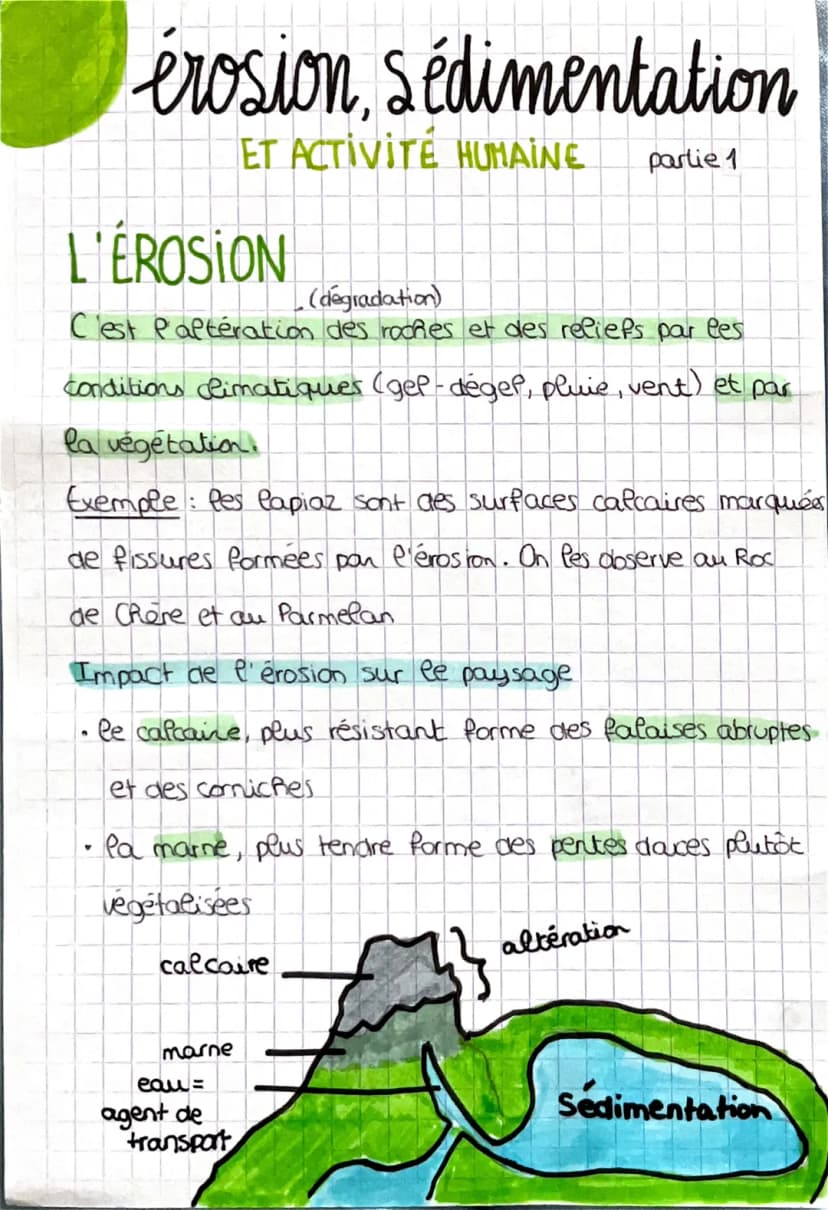 érosion, sédimentation
ET ACTIVITÉ HUMAINE partie 1
L'ÉROSION
(dégradation)
C'est l'altération des roches et des reliefs par les
conditions climatiques (gel-dégel, pluie, vent) et par
la végétation.
Exemple : les lapiaz sont des surfaces calcaires marquées
de fissures formées par l'érosion. On les observe au Roc
de Chère et au Parmelan
Impact de l'érosion sur le paysage
• le calcaire, plus résistant forme des falaises abruptes
et des corniches
• la marne, plus tendre forme des pentes douces plutôt
végétalisées
altération
calcaire
marne
eau =
agent de
transport
Sédimentation